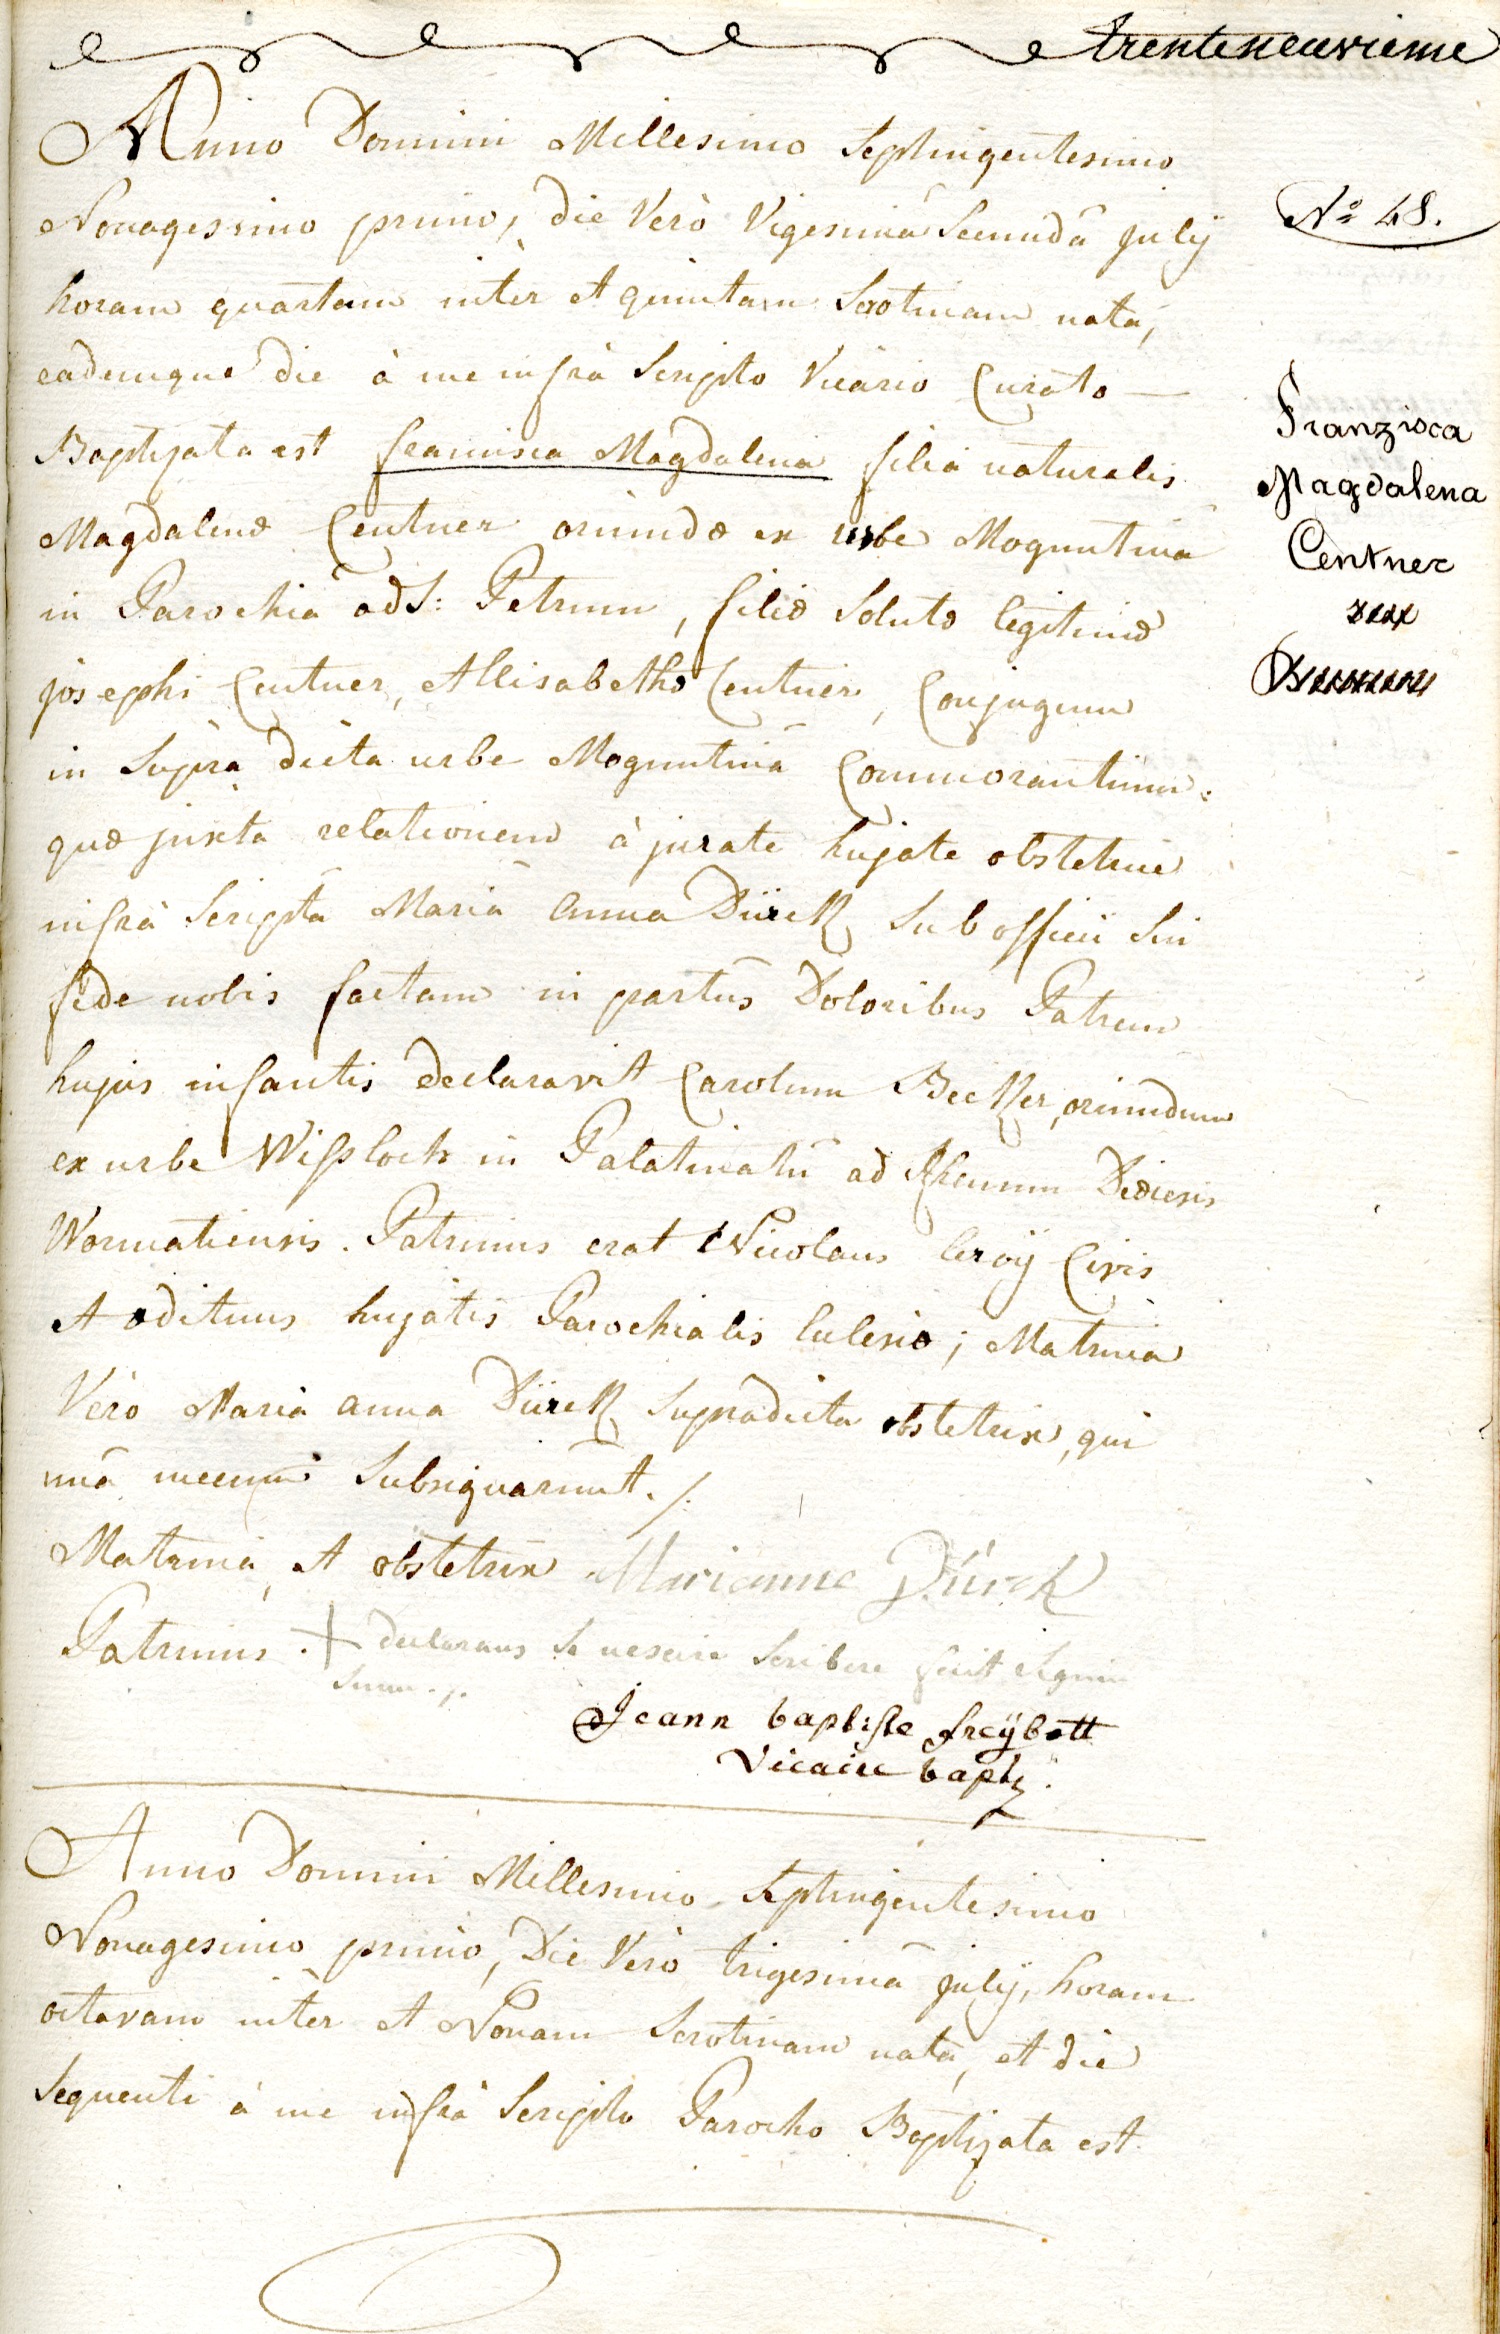 trenteneuvieme
Anno Domini Millesimo Septingentesimo
Nonagesimo primo, die Verò Vigesimâ Secundâ july
horam quartam intèr et quintam Serotinam nata,
eademque die à me infrà Scripto Vicario Curato —
Baptizata est francisca Magdalena filia naturalis
Magdalenæ Centner oriundæ ex urbe Moguntina
in Parochia ad S: Petrum, filiæ Solutæ legitimæ
josephi Centner, et Elisabethæ Centner, Conjugum
in Suprà dicta urbe Moguntinâ Commorantium:
quæ juxta relationem à jurate hujate obstetrice
infrà Scriptâ Mariâ anna Dürck Sub officii Sui
fide nobis factam in partûs Doloribus Patrem
hujus infantis declaravit Carolum Becker, oriundum
ex urbe Wissloch in Palatinatû ad Rhenum Diœcesis
Wormatiensis. Patrinus erat Nicolaus leroÿ Civis
et ædituus hujatis Parochialis Eclesiæ; Matrina
Verò Maria anna Dürck Supradicta obstetrix, qui
unà mecum Subsignarunt. /.
Matrina, et obstetrix Marianne Dürck
Patrinus . + declarans Se nescire Scribere fecit Signum
Suum . /.
Jeann baptiste freÿbott
Vicaire baptz.
Anno Domini Millesimo Septingentesimo
Nonagesimo primo, Die Verò trigesimâ july, horam
octavam intèr et Nonam Serotinam nata, et die
Sequenti à me infrà Scripto Parocho Baptizata est.
Nº 48.
Franzisca
Magdalena
Centner